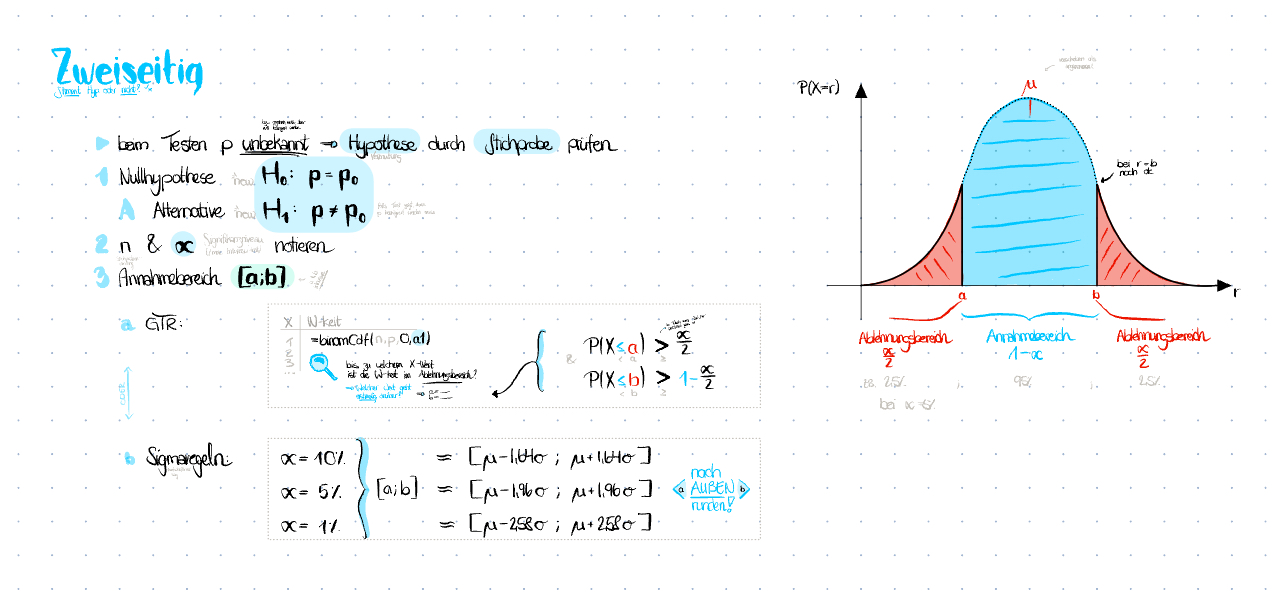 Zweiseitig
Stimmt Hyp oder nicht?
beim Testen p unbekannt → Hypothese durch Stichprobe prüfen
Vermutung
1 Nullhypothese H₀: p = p₀
A Alternative H₁: p ≠ p₀
2 n & α Signifikanzniveau notieren
3 Annahmebereich [a;b]
a GTR:
X W-keit
1 =binomCdf(n,p,0,a1)
2
3
bis zu welchem X-Wert
ist die W-keit im Ablehnungsbereich?
→ Welcher Wert geht
a=
b=
P(X≤a) > α/2
&
P(X≤b) > 1-α/2
ODER
b Sigmaregeln:
α = 10% ≈ [μ-1,64σ ; μ+1,64σ]
α = 5% [a;b] ≈ [μ-1,96σ ; μ+1,96σ]
α = 1% ≈ [μ-2,58σ ; μ+2,58σ]
nach
a AUßEN b
runden!
P(X=r)
μ
bei r=b
noch α
r
a b
Ablehnungsbereich Annahmebereich Ablehnungsbereich
α/2 1-α α/2
z.B. 2,5% 95% 2,5%
bei α=5%